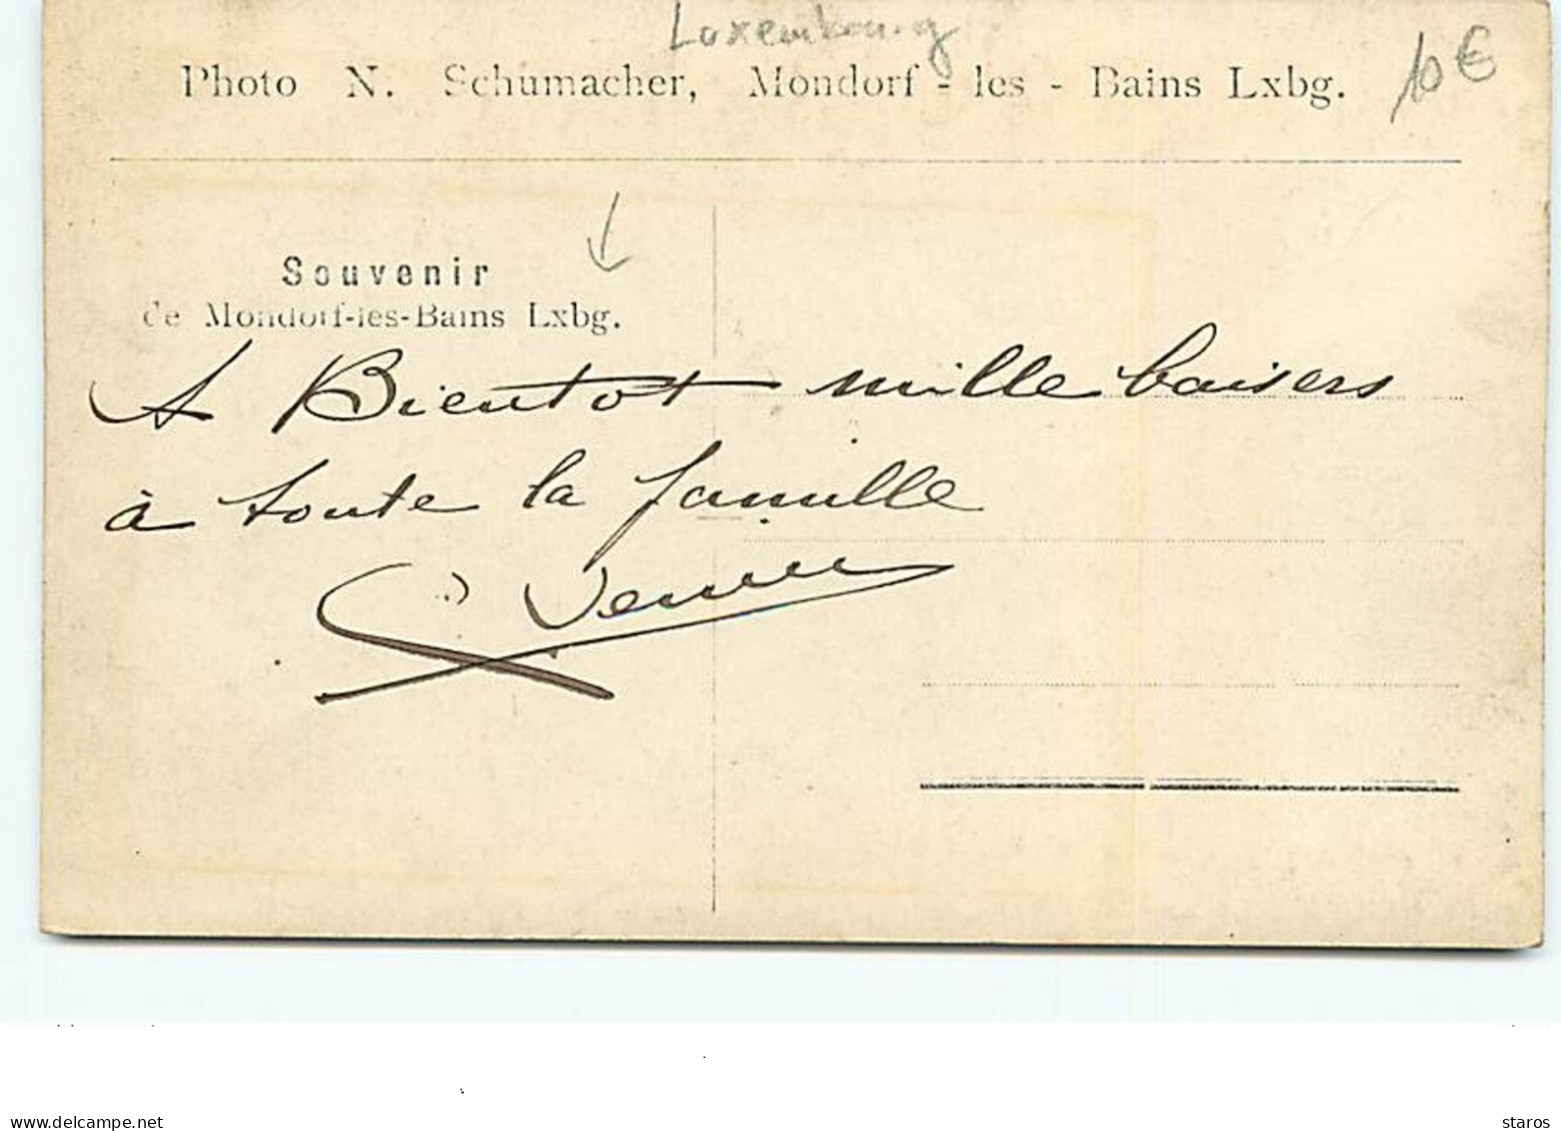 Luxembourg
10 €
Photo N. Schumacher, Mondorf - les - Bains Lxbg.
Souvenir
de Mondorf-les-Bains Lxbg.
A Bientot mille baisers
à toute la famille
delcampe.net
staros